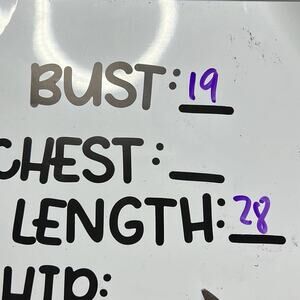 BUST: 19
CHEST:
LENGTH: 28
HIP: